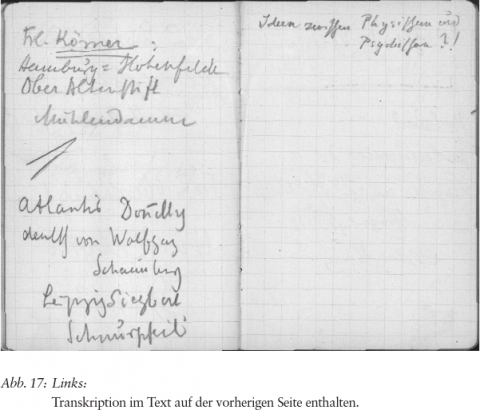 Frl. Körner :
Hamburg = Hohenfelde
Ober Altenstift
Mühlendamm
Atlantis Donelly
deutsch von Wolfgang
Schaumburg
Leipzig Siegbert
Schnurpfeil
Ideen zwischen Physischem und
Psychischem ?!
Abb. 17: Links:
Transkription im Text auf der vorherigen Seite enthalten.